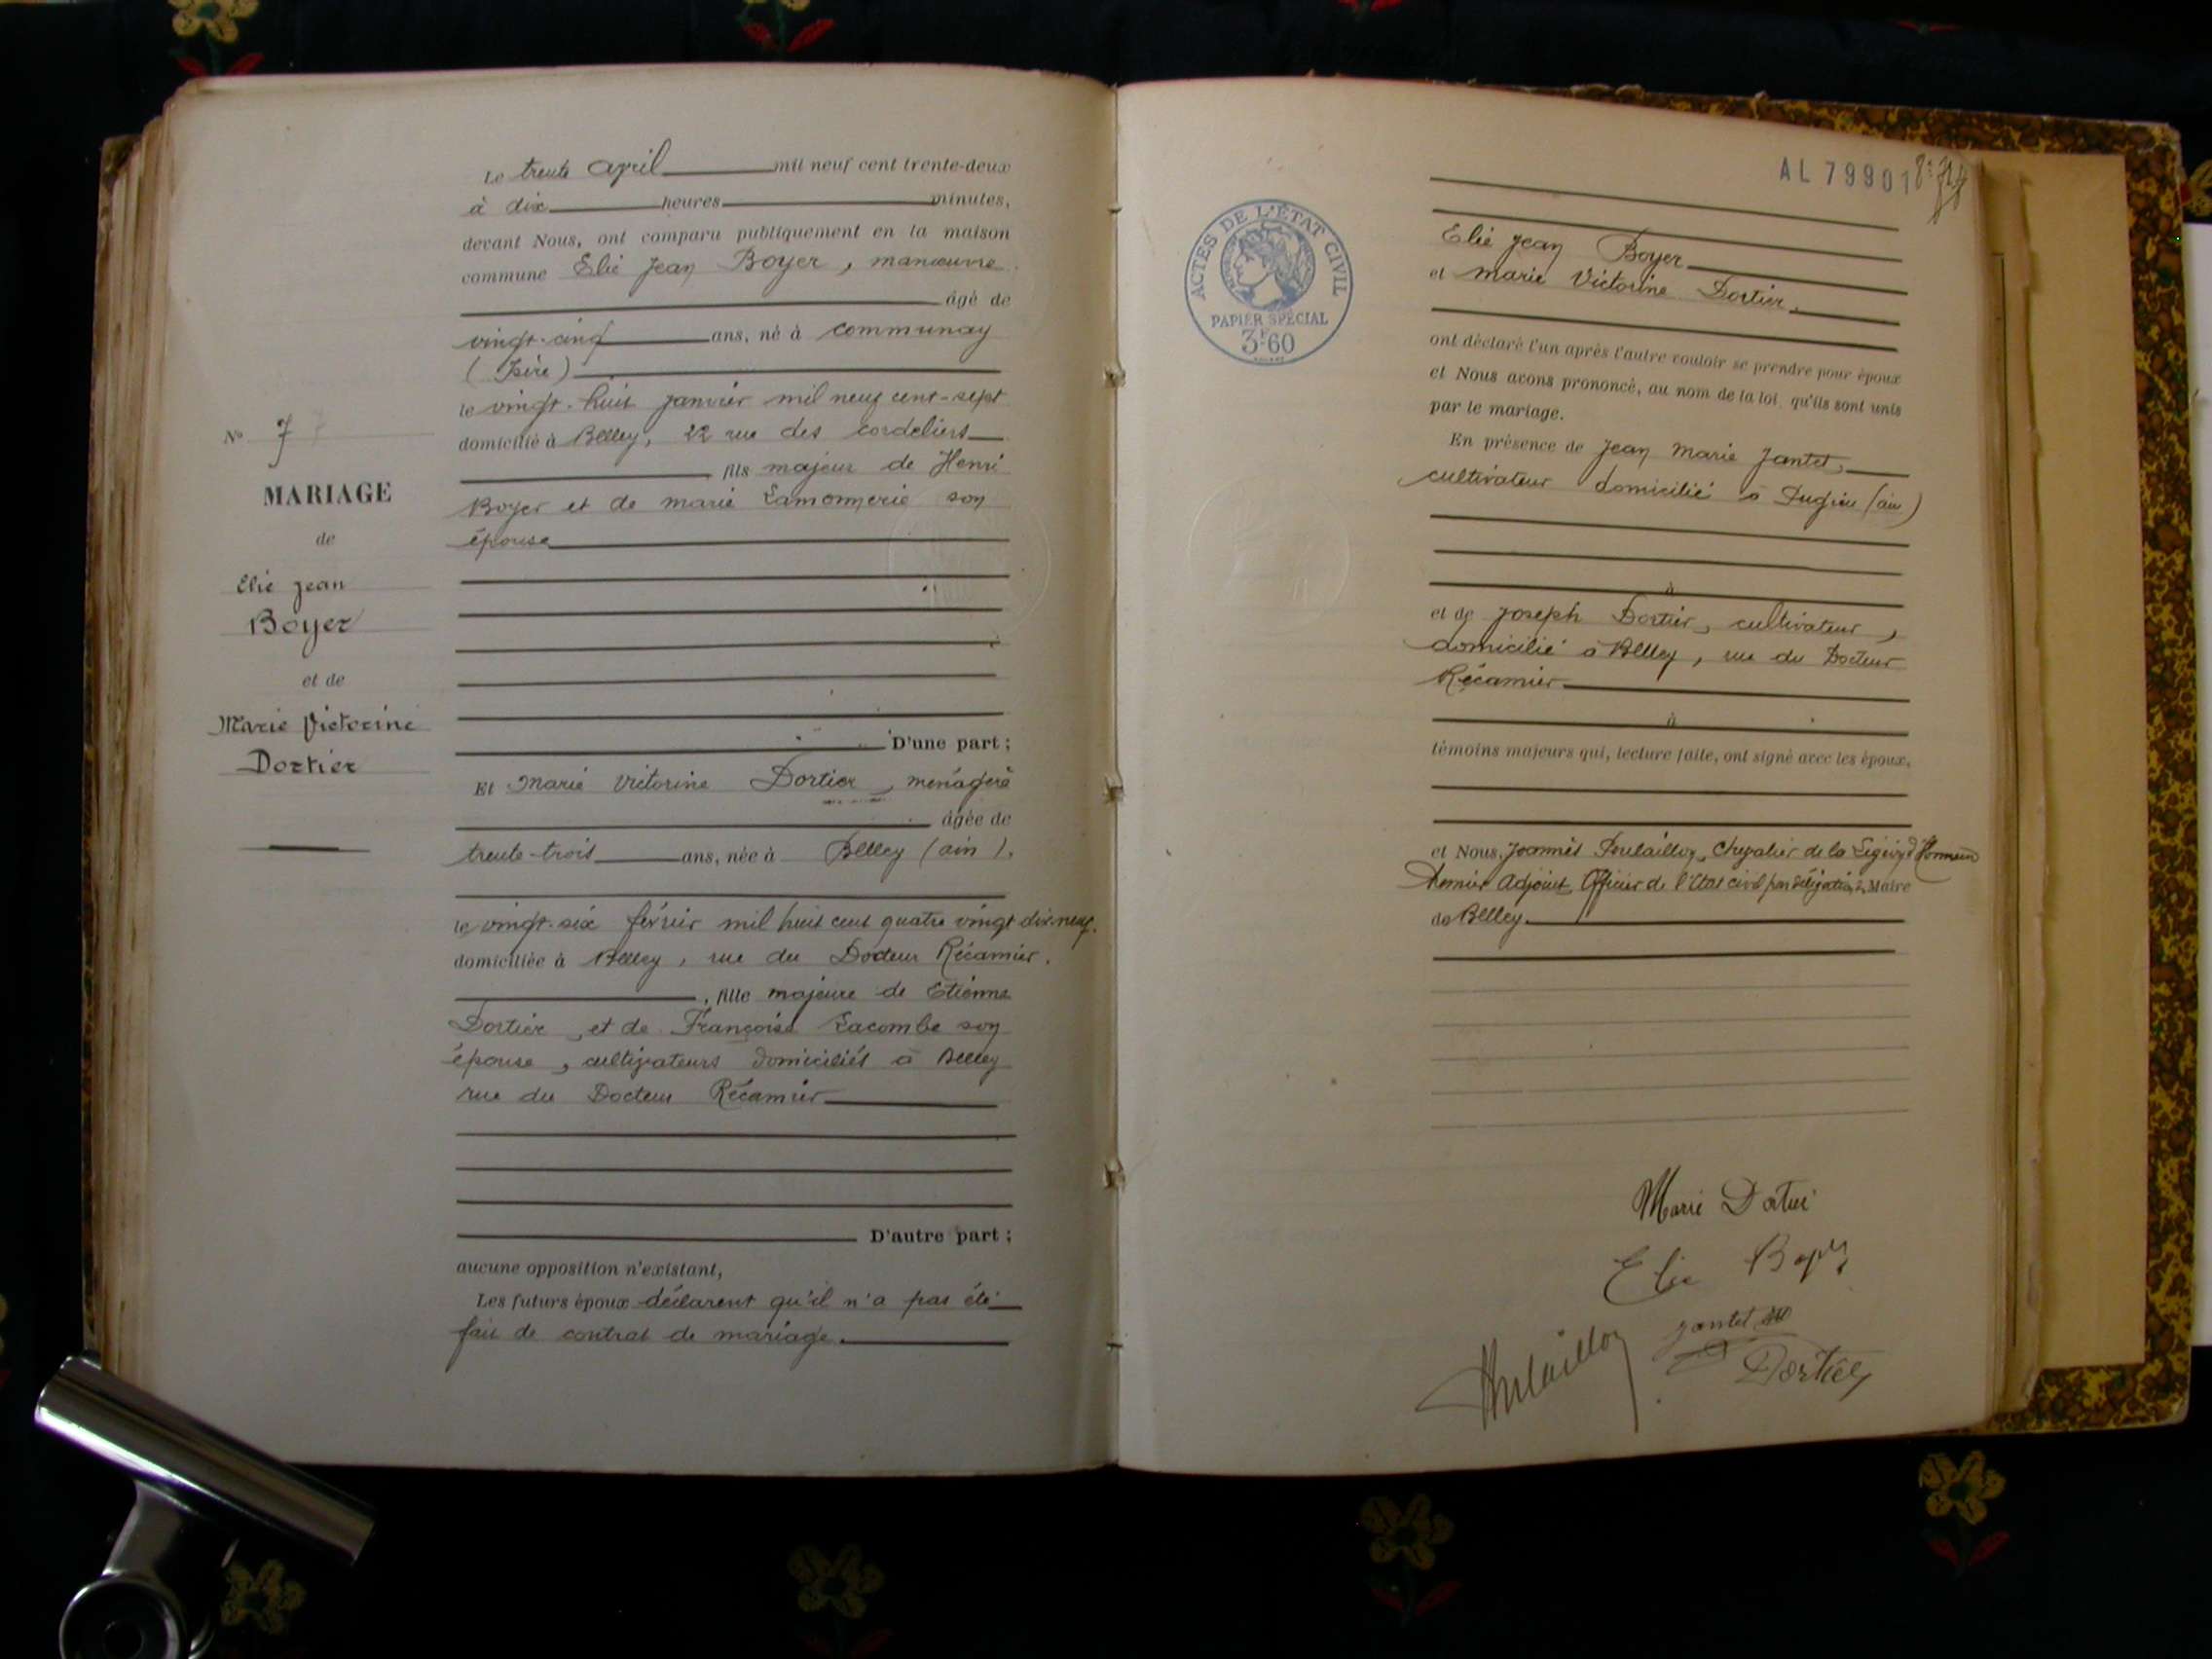 Le trente avril mil neuf cent trente-deux
à dix heures minutes,
devant Nous, ont comparu publiquement en la maison
commune Elie Jean Boyer, manœuvre
âgé de
vingt-cinq ans, né à Communay
(Isère)
le vingt-huit janvier mil neuf cent-sept
domicilié à Belley, 22 rue des Cordeliers
fils majeur de Henri
Boyer et de Marie Lamonnerie son
épouse
D'une part ;
Et Marie Victorine Dortier, ménagère
âgée de
trente-trois ans, née à Belley (Ain).
le vingt-six février mil huit cent quatre vingt dix-neuf.
domiciliée à Belley, rue du Docteur Récamier.
, fille majeure de Etienne
Dortier, et de Françoise Lacombe son
épouse, cultivateurs domiciliés à Belley
rue du Docteur Récamier
D'autre part ;
aucune opposition n'existant,
Les futurs époux déclarent qu'il n'a pas été
fait de contrat de mariage.
N° 7
MARIAGE
de
Elie Jean
Boyer
et de
Marie Victorine
Dortier
AL 79901
ACTES DE L'ÉTAT CIVIL
PAPIER SPÉCIAL
3F60
Elie Jean Boyer
et Marie Victorine Dortier.
ont déclaré l'un après l'autre vouloir se prendre pour époux
et Nous avons prononcé, au nom de la loi qu'ils sont unis
par le mariage.
En présence de Jean Marie Jantet,
cultivateur domicilié à Pugieu (Ain)
à
et de Joseph Dortier, cultivateur,
domicilié à Belley, rue du Docteur
Récamier
à
témoins majeurs qui, lecture faite, ont signé avec les époux,
et Nous, Joannès Poulaillon, Chevalier de la Légion d'Honneur
Premier Adjoint, Officier de l'Etat civil par délégation du Maire
de Belley.
Marie Dortier
Elie Boyer
Jantet
Poulaillon
Dortier